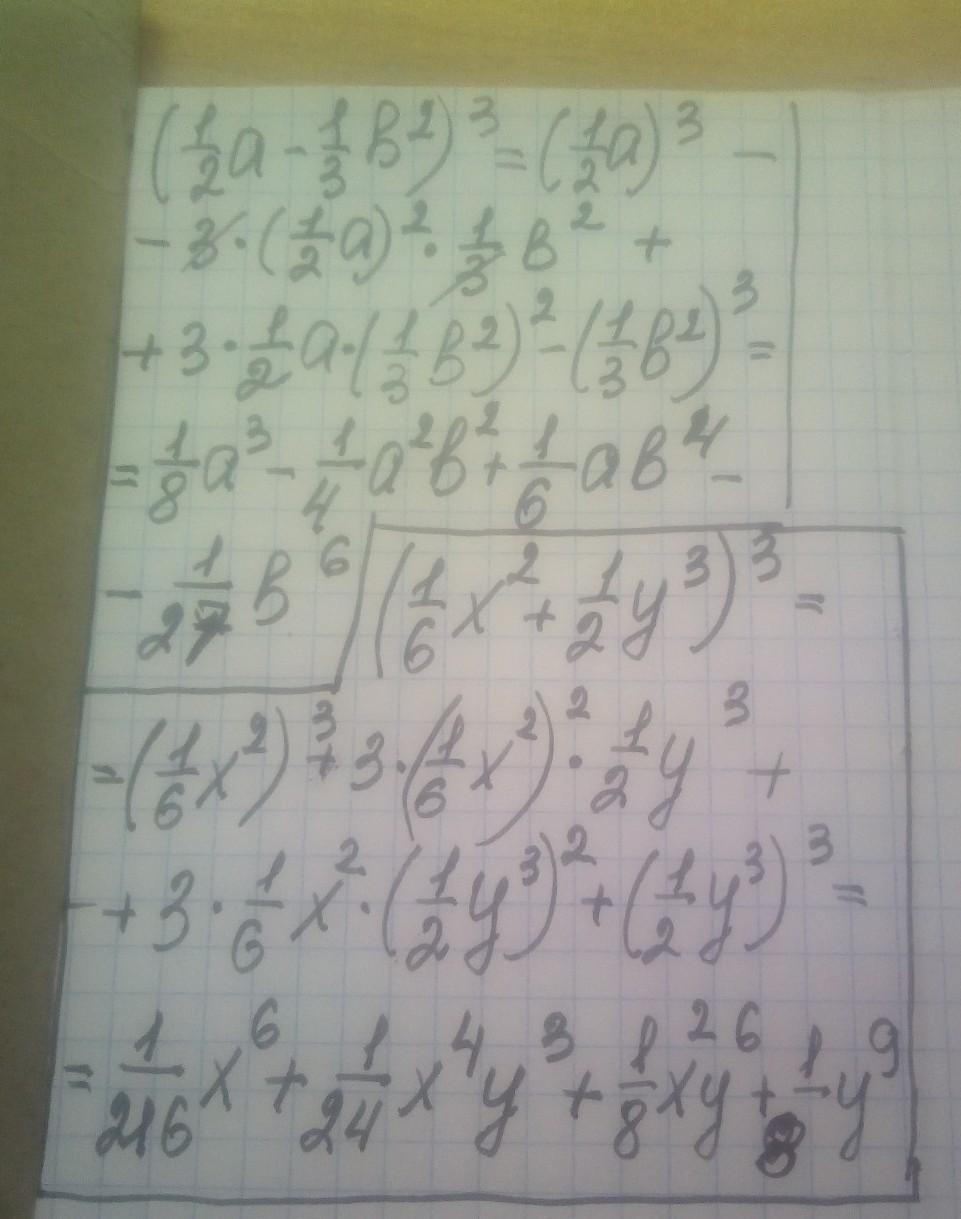 (1/2 a - 1/3 b²)³ = (1/2 a)³ -
- 3 · (1/2 a)² · 1/3 b² +
+ 3 · 1/2 a · (1/3 b²)² - (1/3 b²)³ =
= 1/8 a³ - 1/4 a²b² + 1/6 ab⁴ -
- 1/27 b⁶
(1/6 x² + 1/2 y³)³ =
= (1/6 x²)³ + 3 · (1/6 x²)² · 1/2 y³ +
+ 3 · 1/6 x² · (1/2 y³)² + (1/2 y³)³ =
= 1/216 x⁶ + 1/24 x⁴y³ + 1/8 x²y⁶ + 1/8 y⁹